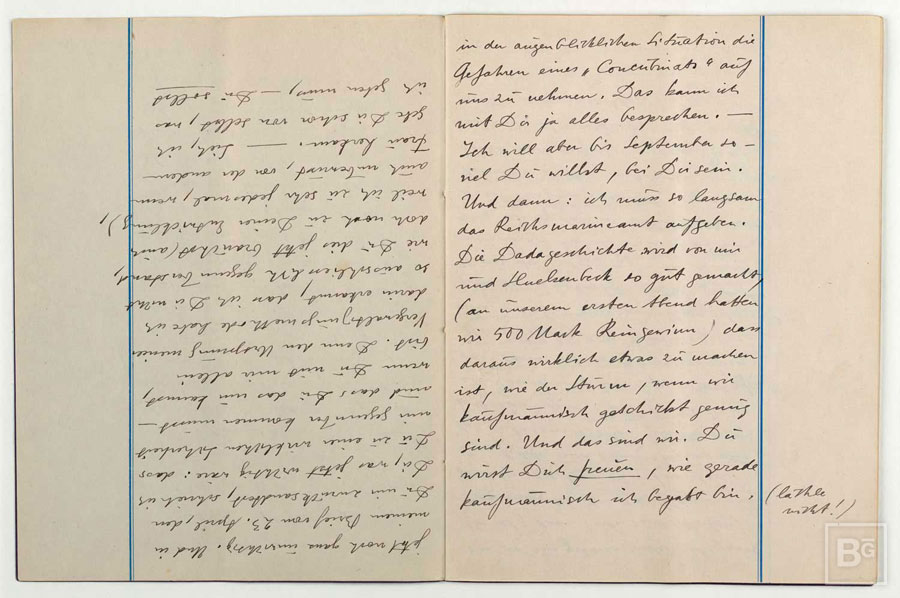 jetzt noch ganz unwichtig. Und in
meinem Brief vom 23. April, den
Du mir zurücksandtest, schrieb ich
Dir, was jetzt wichtig wäre: dass
Du zu einer wirklichen Sicherheit
mir gegenüber kommen musst —
und dass Du das nur kannst,
wenn Du mit mir allein
bist. Denn den Ursprung meiner
Vergewaltigungsmethode habe ich
darin erkannt, dass ich Dir nicht
so ausschliesslich gegenüberstand,
wie Du dies jetzt brauchst (auch
doch noch zu Deiner Entwicklung),
weil ich zu sehr jedesmal, wenn
auch unbewusst, von der andern
Frau herkam. — Sieh, ich
gebe Dir schon von selbst, was
ich geben muss, — Du sollst
in der augenblicklichen Situation die
Gefahren eines „Concubinats“ auf
uns zu nehmen. Das kann ich
mit Dir ja alles besprechen. —
Ich will aber bis September so-
viel Du willst, bei Dir sein.
Und dann: ich muss so langsam
das Reichsmarineamt aufgeben.
Die Dadageschichte wird von mir
und Huelsenbeck so gut gemacht,
(an unserem ersten Abend hatten
wir 500 Mark Reingewinn) dass
daraus wirklich etwas zu machen
ist, wie der Sturm, wenn wir
kaufmännisch geschickt genug
sind. Und das sind wir. Du
wirst Dich freuen, wie gerade
kaufmännisch ich begabt bin.
(lache
nicht!)
BG